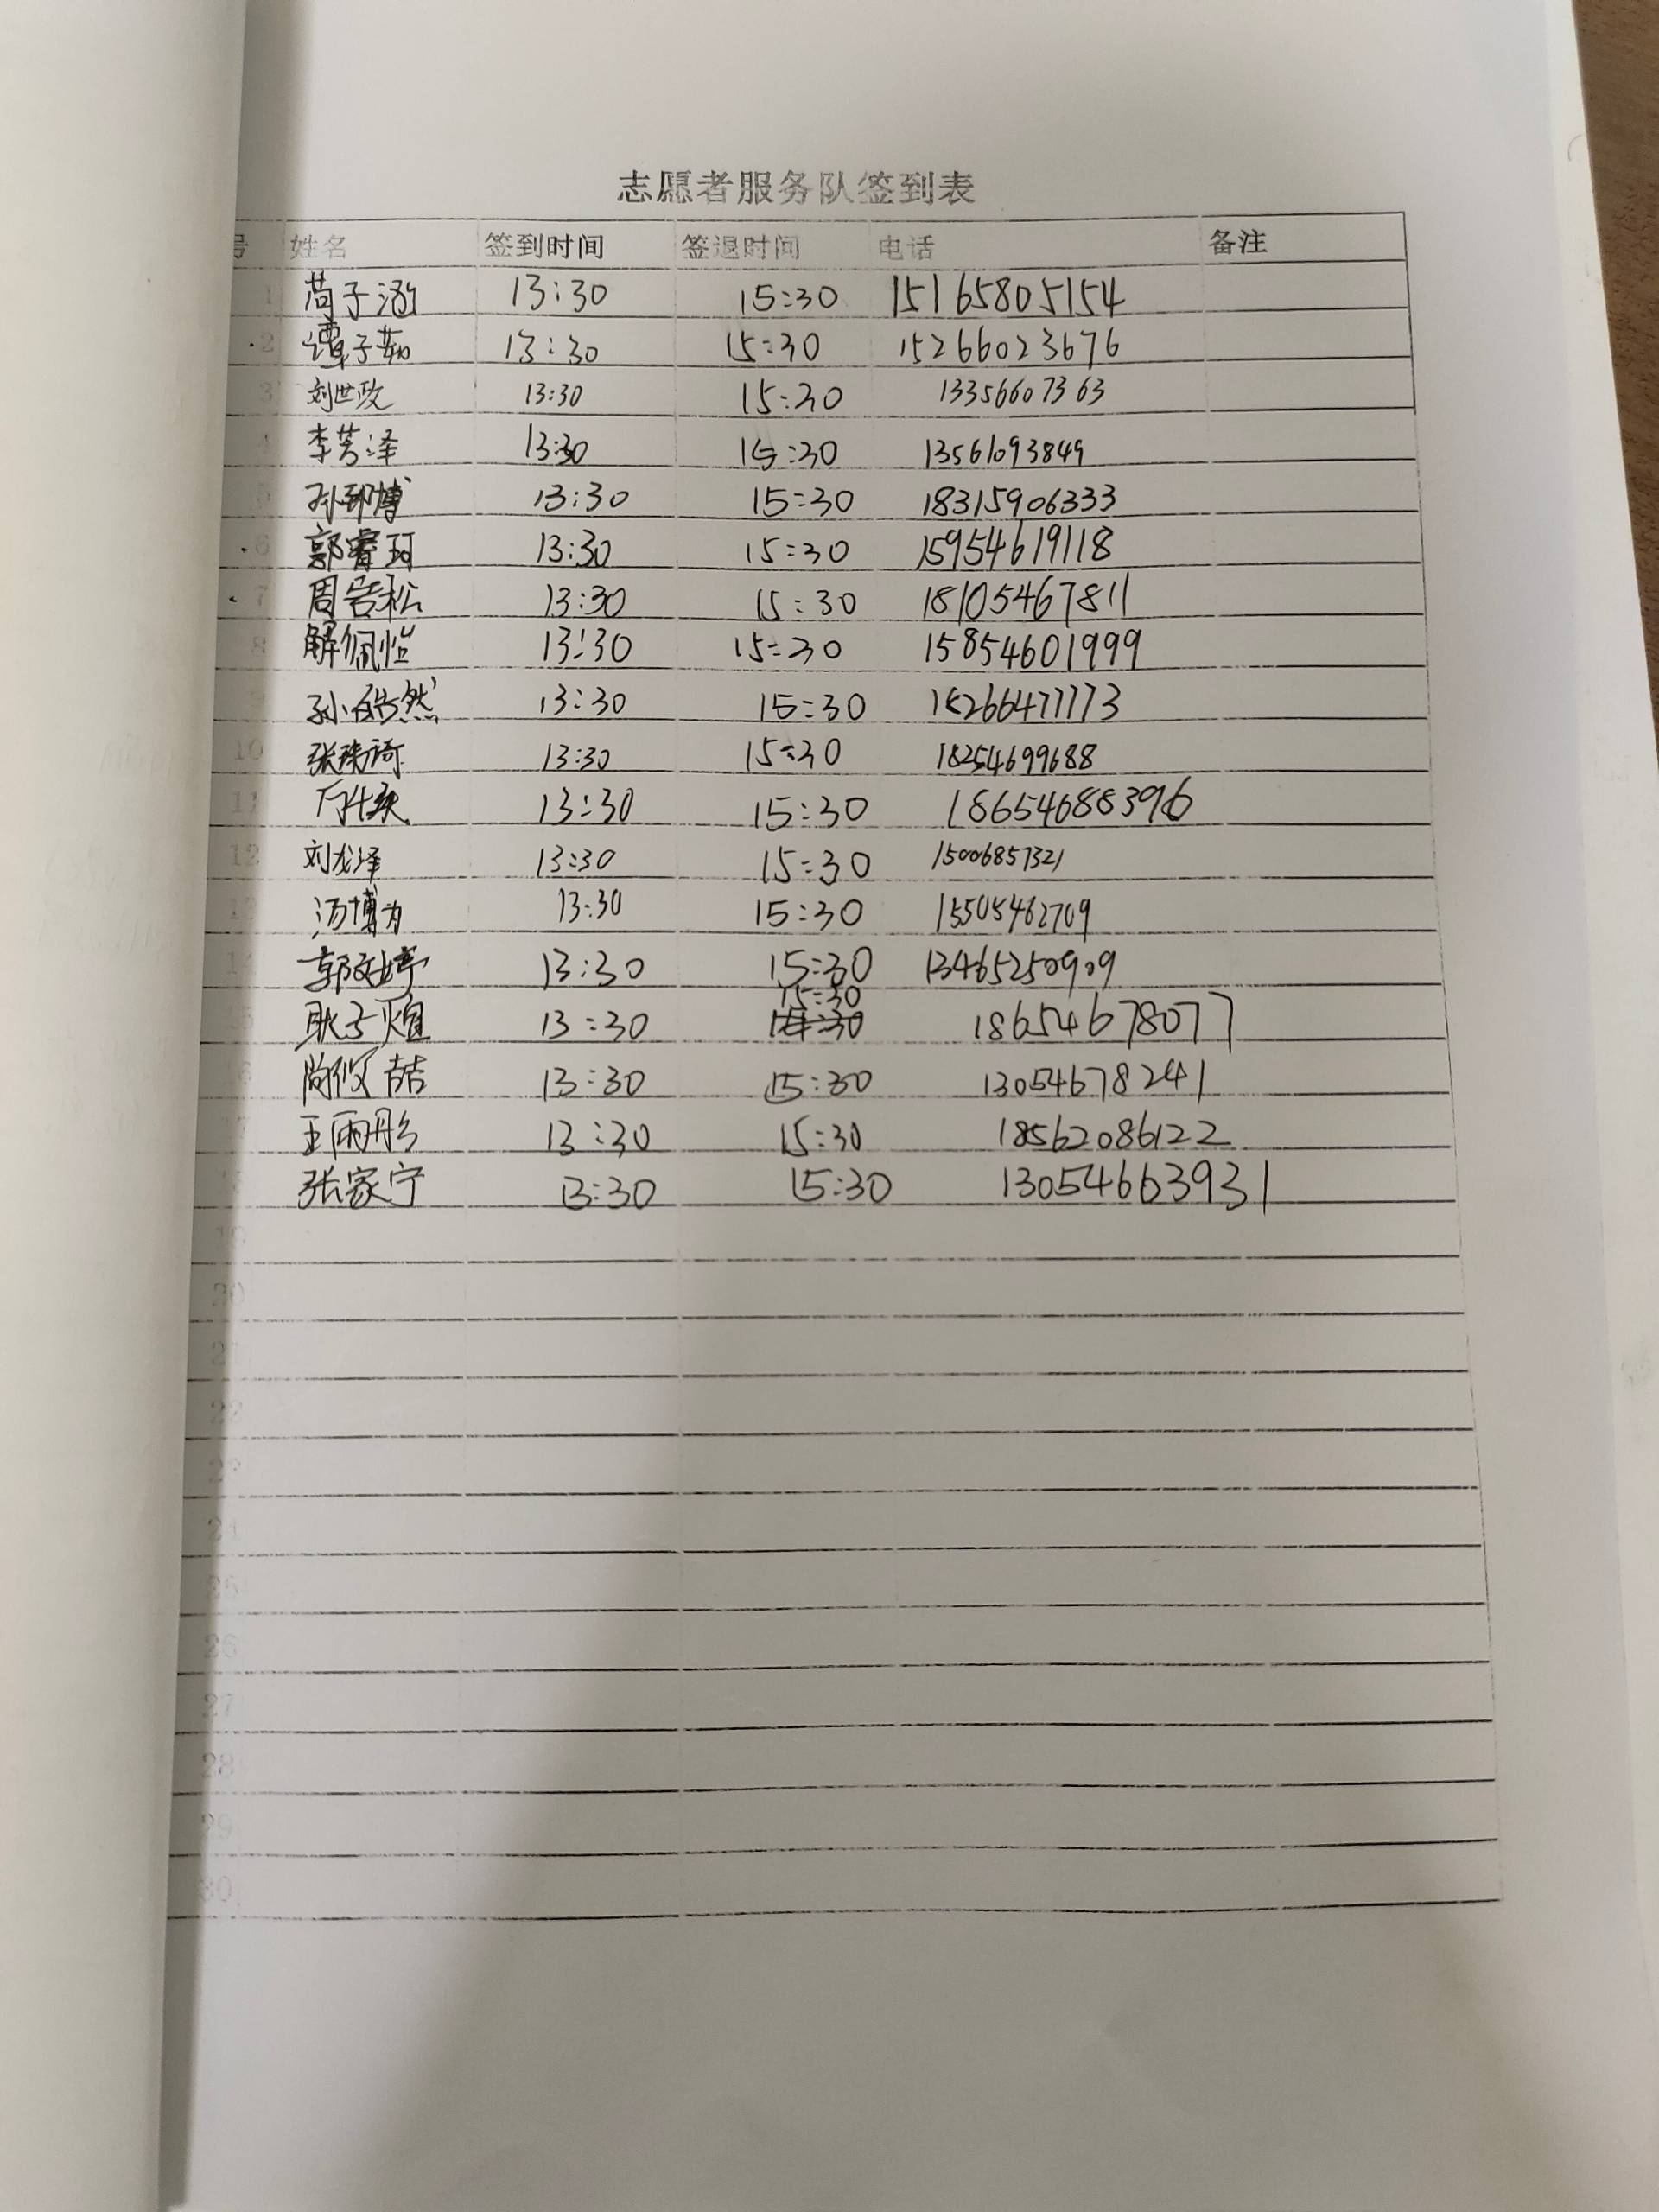 志愿者服务队签到表
号 姓名 签到时间 签退时间 电话 备注
1 苘子涵 13:30 15:30 15165805154
2 谭子茹 13:30 15:30 15266023676
3 刘世政 13:30 15:30 13356607363
4 李芳泽 13:30 15:30 13561093849
5 博 13:30 15:30 18315906333
6 郭睿珂 13:30 15:30 15954619118
7 周岩松 13:30 15:30 18105467811
8 解佩怡 13:30 15:30 15854601999
9 孙皓然 13:30 15:30 15266477773
10 张琦 13:30 15:30 18254699688
11 13:30 15:30 18654688396
12 刘龙泽 13:30 15:30 15006857321
13 汤博为 13:30 15:30 15505462709
14 郭文婷 13:30 15:30 13465250909
15:30
15 耿子煊 13:30 18654678077
16 尚攸喆 13:30 15:30 13054678241
17 王雨彤 13:30 15:30 18562086122
18 张家宁 13:30 15:30 13054663931
19
20
21
22
23
24
25
26
27
28
29
30